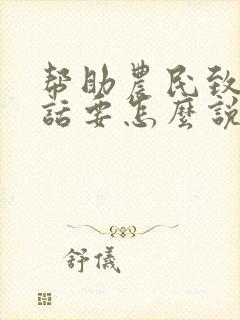 幫助農民致
話要怎麼說
舒儀